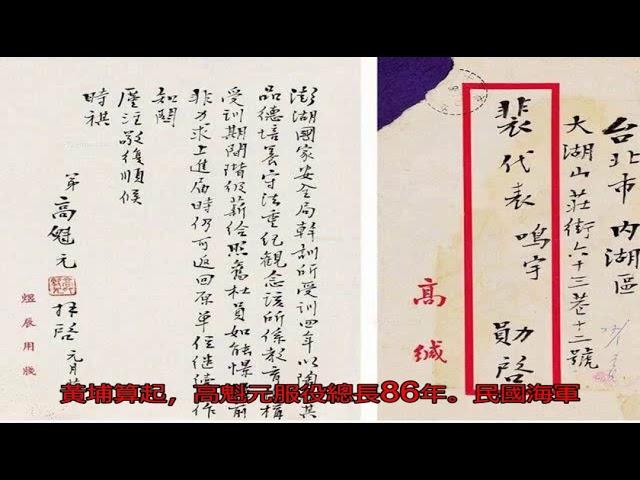 台北市內湖區
大湖山莊街六十三巷十三號
裴代表鳴宇 勛啓
高緘
澎湖國家安全局幹訓所受訓四年以陶其
品德培養守法重紀觀念該所係教育機
受訓期間階級薪給照舊杜員如能前
非力求上進屆時仍可返回原單位繼續作
知關
廑注敬復順候
時祺
弟高魁元拜啓元月
煜辰用牋
黃埔算起，高魁元服役總長86年。民國海軍